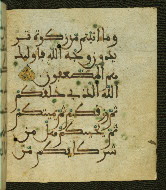 وما اتيتم من زكوة تر
يدون وجه الله فاوليك
هم المضعفون
الله الذي خلقكم
ثم رزقكم ثم يميتكم
ثم يحييكم هل من
شركايكم من